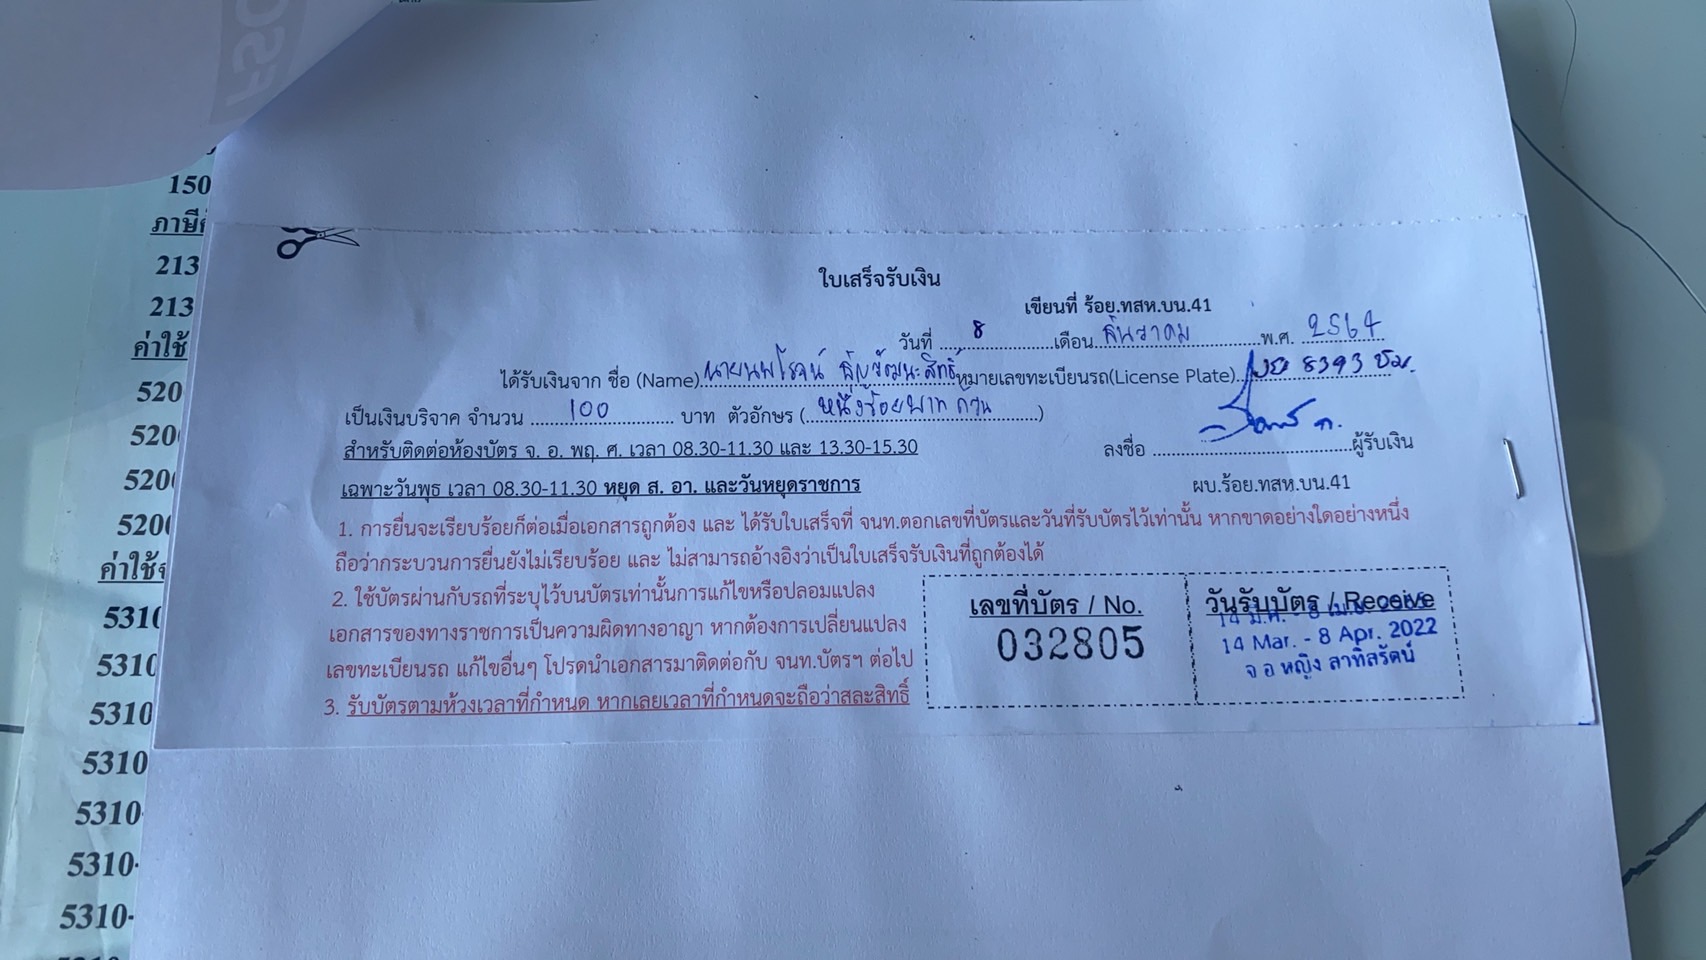 150
ภาษี
213
213
ค่าใช้
520
520
5200
5200
5200
ค่าใช้จ
5310
5310
5310
5310
5310-
5310-
5310-
ใบเสร็จรับเงิน
เขียนที่ ร้อย.ทสห.บน.41
วันที่ 8 เดือน ธันวาคม พ.ศ. 2564
ได้รับเงินจาก ชื่อ (Name) นายนพโรจน์ หมายเลขทะเบียนรถ(License Plate) 8393 ชม.
เป็นเงินบริจาค จำนวน 100 บาท ตัวอักษร (หนึ่งร้อยบาทถ้วน)
สำหรับติดต่อห้องบัตร จ. อ. พฤ. ศ. เวลา 08.30-11.30 และ 13.30-15.30
ลงชื่อ ผู้รับเงิน
เฉพาะวันพุธ เวลา 08.30-11.30 หยุด ส. อา. และวันหยุดราชการ
ผบ.ร้อย.ทสห.บน.41
1. การยื่นจะเรียบร้อยก็ต่อเมื่อเอกสารถูกต้อง และ ได้รับใบเสร็จที่ จนท.ตอกเลขที่บัตรและวันที่รับบัตรไว้เท่านั้น หากขาดอย่างใดอย่างหนึ่ง
ถือว่ากระบวนการยื่นยังไม่เรียบร้อย และ ไม่สามารถอ้างอิงว่าเป็นใบเสร็จรับเงินที่ถูกต้องได้
2. ใช้บัตรผ่านกับรถที่ระบุไว้บนบัตรเท่านั้นการแก้ไขหรือปลอมแปลง
เอกสารของทางราชการเป็นความผิดทางอาญา หากต้องการเปลี่ยนแปลง
เลขทะเบียนรถ แก้ไขอื่นๆ โปรดนำเอกสารมาติดต่อกับ จนท.บัตรฯ ต่อไป
3. รับบัตรตามห้วงเวลาที่กำหนด หากเลยเวลาที่กำหนดจะถือว่าสละสิทธิ์
เลขที่บัตร / No.
032805
วันรับบัตร / Receive
14 มี.ค. - 8 เม.ย. 2565
14 Mar. - 8 Apr. 2022
จ อ หญิง ลาทิสรัตน์